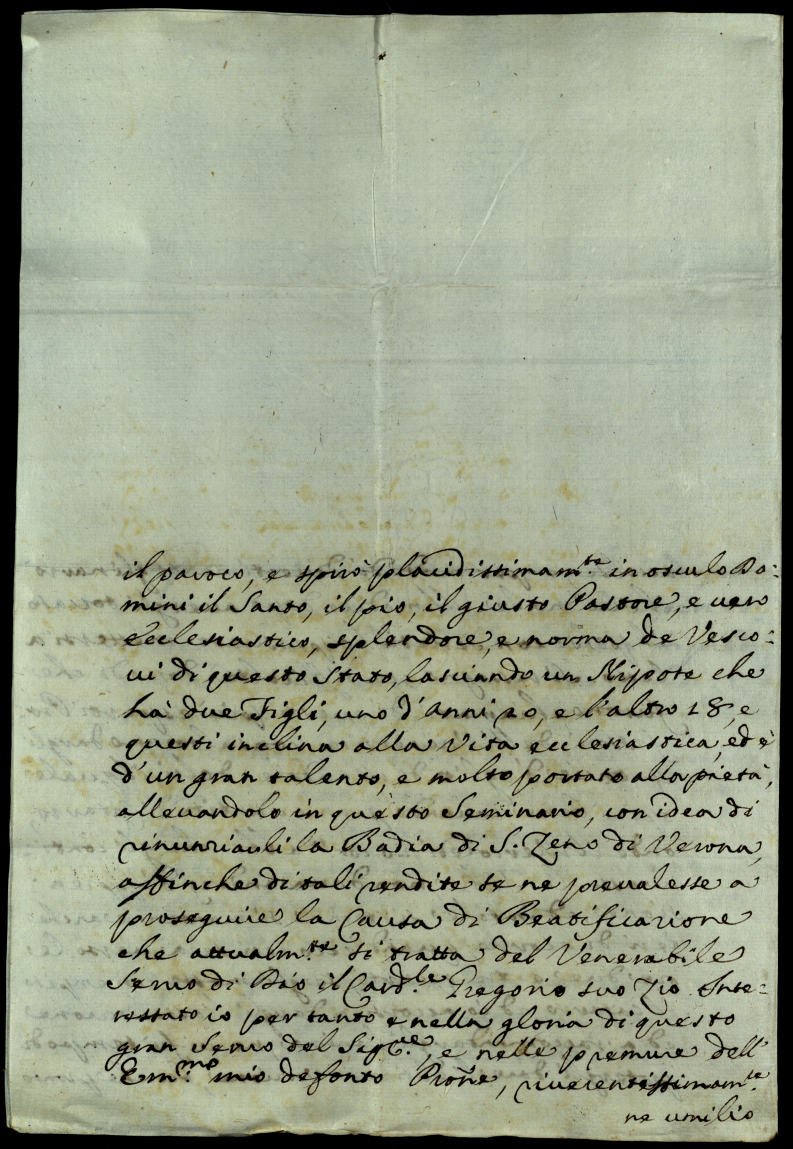 il paroco, e spirò placidissimam.te in osculo Do:
mini il Santo, il pio, il giusto Pastore, e vero
Ecclesiastico, splendore, e norma de Vesco:
vi di questo Stato, lasciando un Nipote che
hà due Figli, uno d'anni 20, e l'altro 18, e
questi inclina alla Vita ecclesiastica, ed è
d'un gran talento, e molto portato alla pietà,
allevandolo in questo Seminario, con idea di
rinunziarli la Badia di S. Zeno di Verona,
affinche di tali rendite se ne prevalesse a
proseguire la Causa di Beatificazione
che attualm.te si tratta del Venerabile
Servo di Dio il Card.le Gregorio suo Zio. Inte:
ressato io per tanto e nella gloria di questo
gran Servo del Sig.re, e nelle premure dell'
Em.mo mio defonto Prone, riverentissimam.te
ne umilio